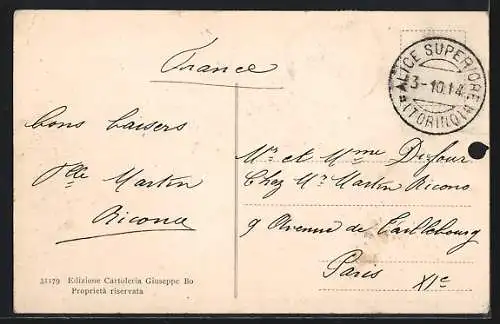 France
ALICE SUPERIORE
3-10.14
(TORINO)
Bons baisers
Martin
Ricono
Mr et Mme Dufour
Chez Mr Martin Ricono
9 Avenue de Taillebourg
Paris XIe
31179 Edizione Cartoleria Giuseppe Bo
Proprietà riservata